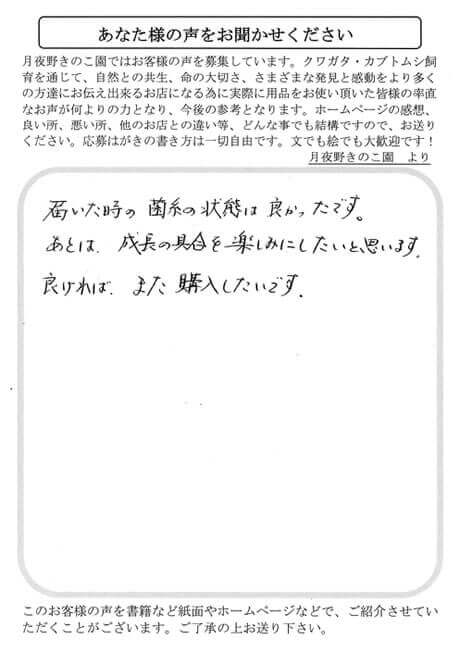 あなた様の声をお聞かせください
月夜野きのこ園ではお客様の声を募集しています。クワガタ・カブトムシ飼
育を通じて、自然との共生、命の大切さ、さまざまな発見と感動をより多く
の方達にお伝え出来るお店になる為に実際に用品をお使い頂いた皆様の率直
なお声が何よりの力となり、今後の参考となります。ホームページの感想、
良い所、悪い所、他のお店との違い等、どんな事でも結構ですので、お送り
ください。応募はがきの書き方は一切自由です。文でも絵でも大歓迎です！
月夜野きのこ園　より
届いた時の菌糸の状態は良かったです。
あとは、成長の具合を楽しみにしたいと思います。
良ければ、また購入したいです。
このお客様の声を書籍など紙面やホームページなどで、ご紹介させてい
ただくことがございます。ご了承の上お送り下さい。